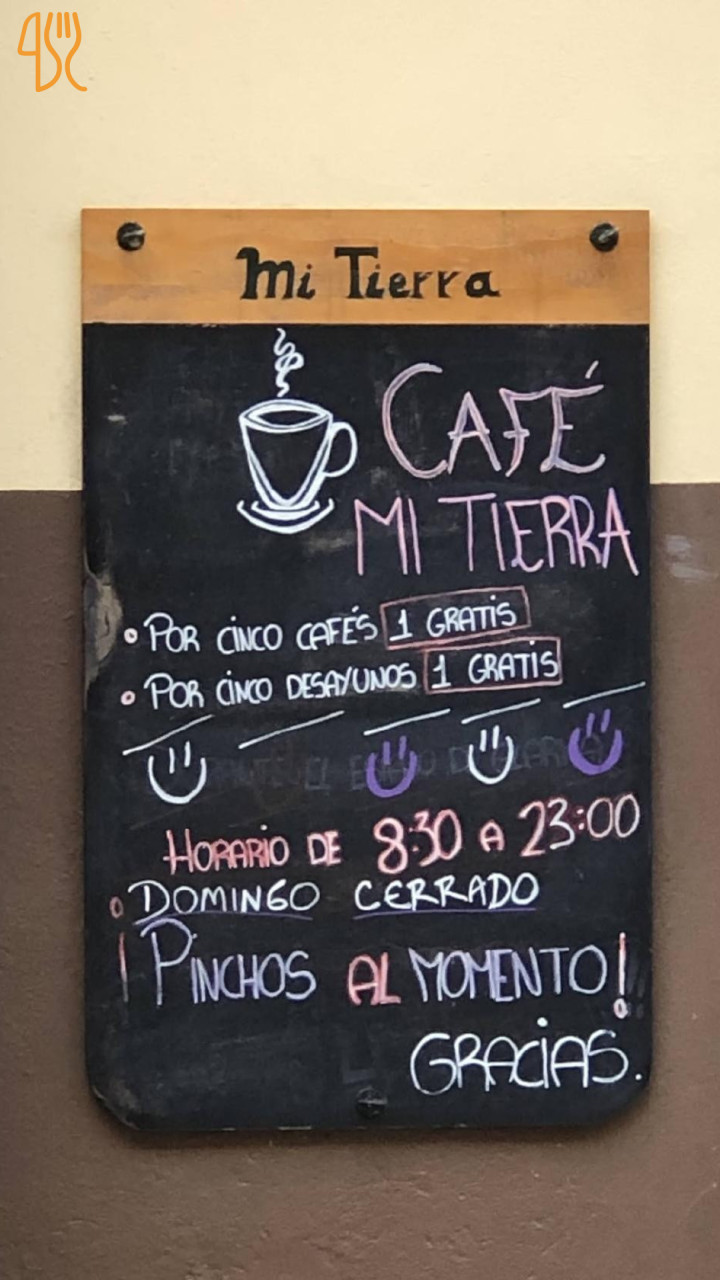 Mi Tierra
CAFÉ
MI TIERRA
• POR CINCO CAFÉS 1 GRATIS
• POR CINCO DESAYUNOS 1 GRATIS
HORARIO DE 8:30 A 23:00
• DOMINGO CERRADO
¡PINCHOS AL MOMENTO!
GRACIAS.